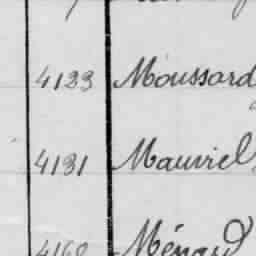 4123 Moussard
4131 Mauriel
4160 Ménard